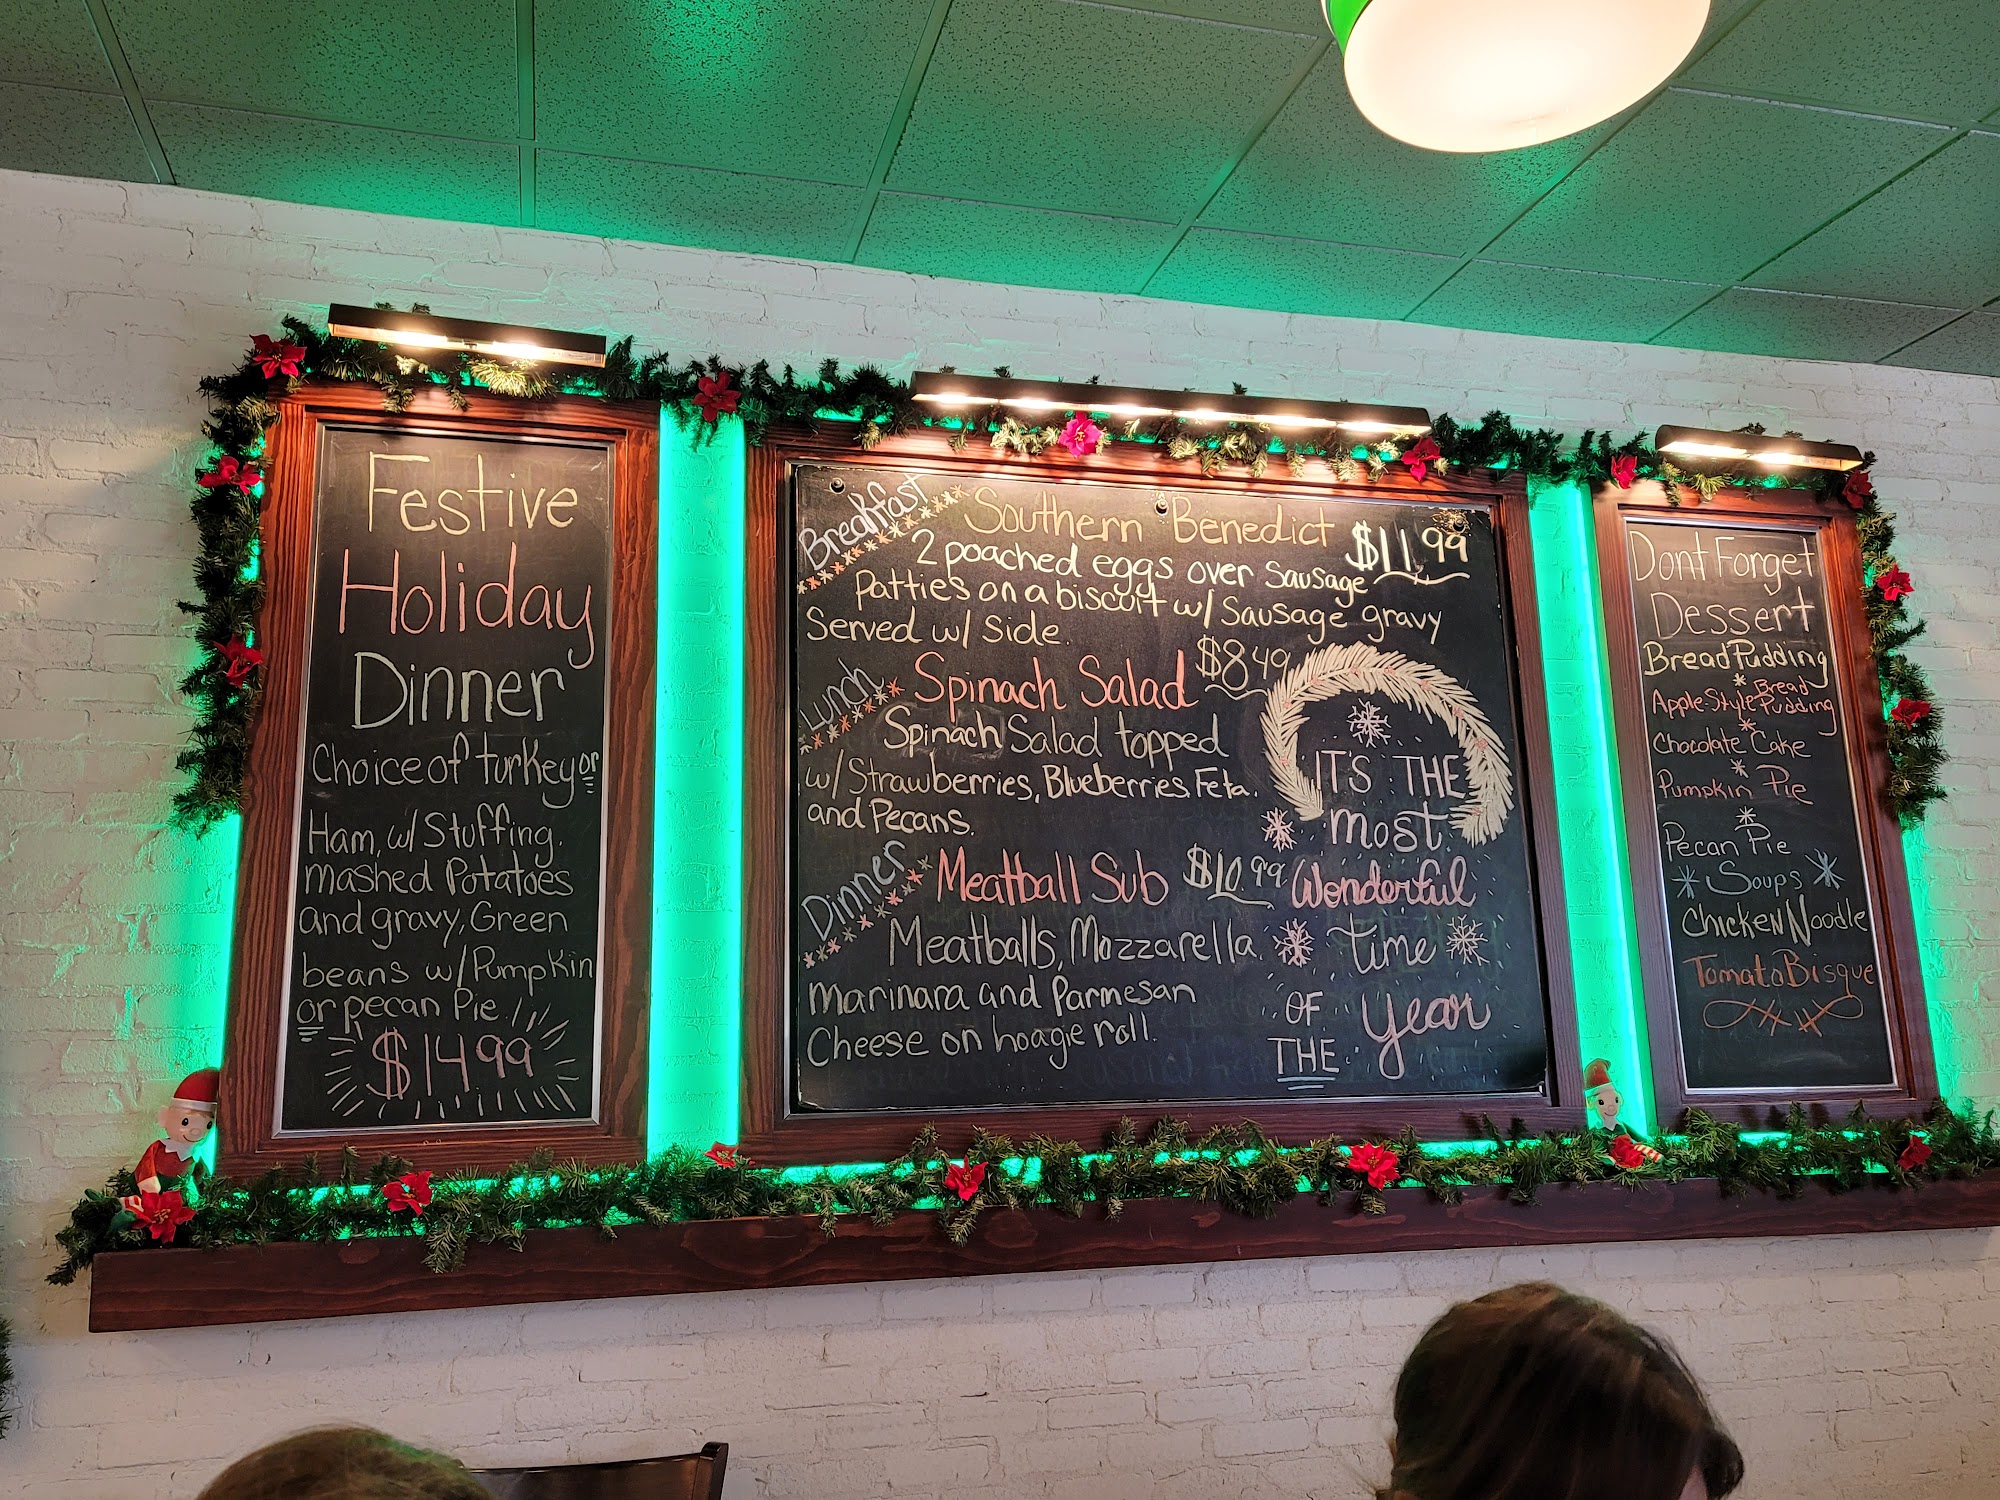 Festive
Holiday
Dinner
Choice of turkey or
Ham, w/ Stuffing,
mashed Potatoes
and gravy, Green
beans w/ Pumpkin
or pecan Pie!
$14.99
Breakfast
Southern Benedict $11.99
2 poached eggs over sausage
Patties on a biscuit w/ Sausage gravy
Served w/ side.
Lunch
Spinach Salad $8.49
Spinach Salad topped
w/ Strawberries, Blueberries, Feta,
and Pecans.
Dinner
Meatball Sub $10.99
Meatballs, Mozzarella,
marinara and Parmesan
Cheese on hoagie roll.
IT'S THE
most
Wonderful
time
OF
THE
year
Dont Forget
Dessert
Bread Pudding
Apple-Style Bread Pudding
Chocolate Cake
Pumpkin Pie
Pecan Pie
Soups
Chicken Noodle
Tomato Bisque